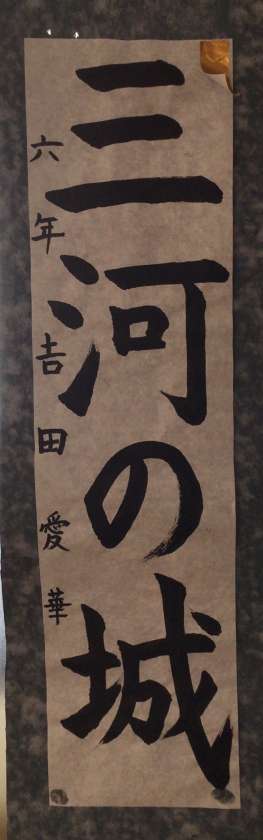 三河の城
六年吉田愛華